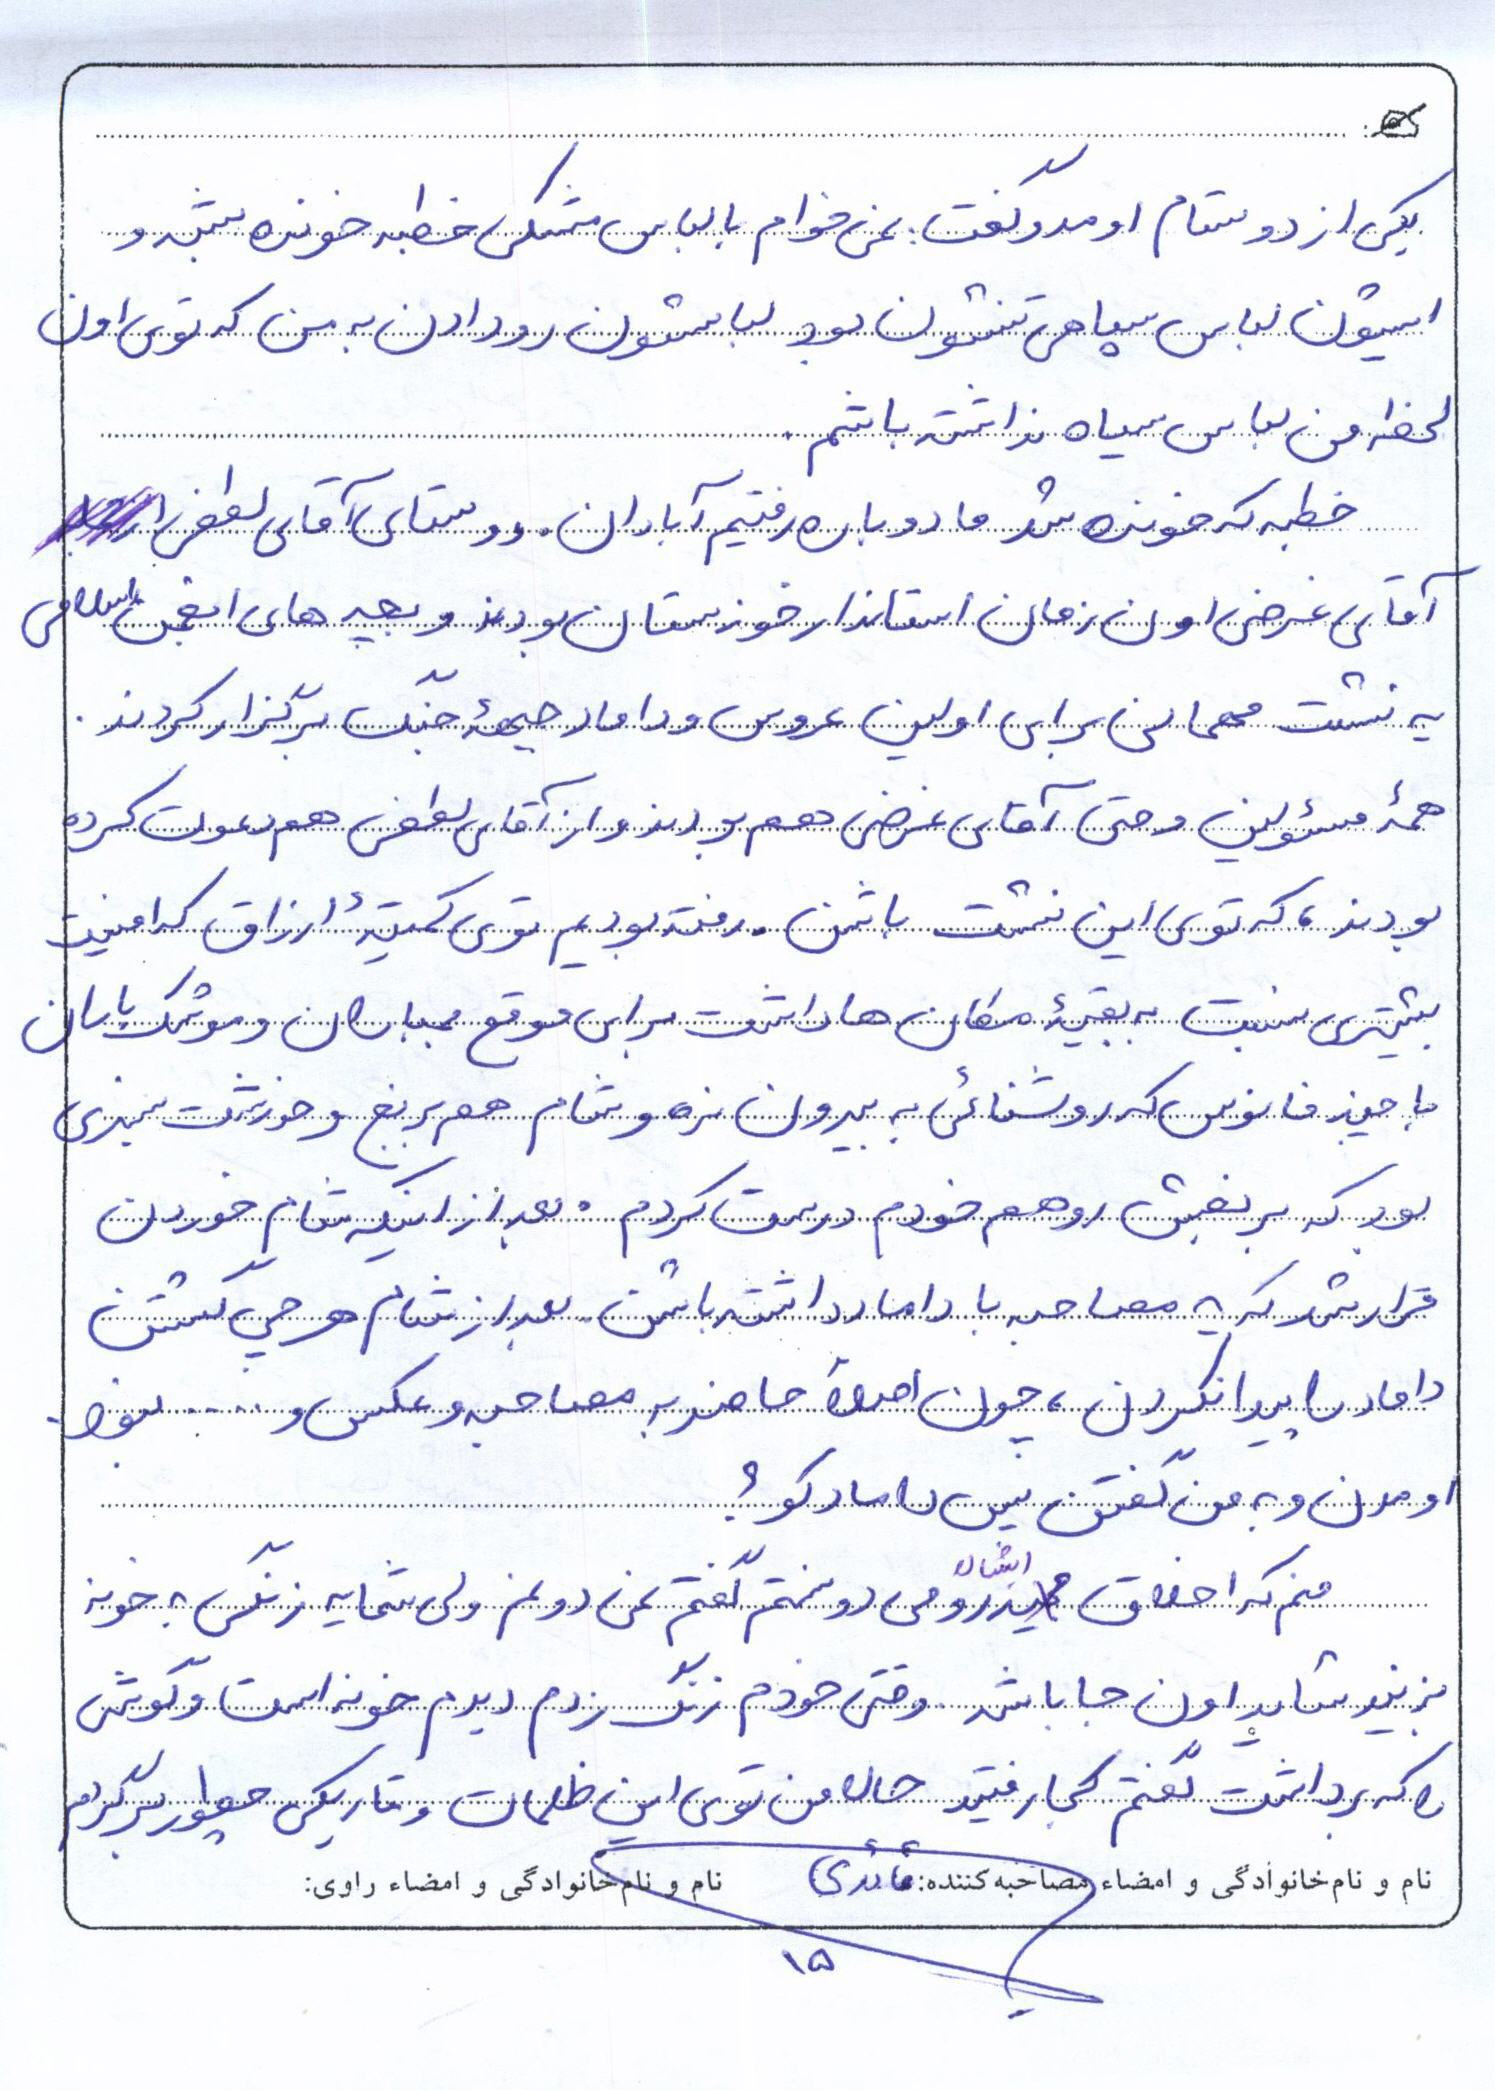 یکی از دوستام اومد و گفت: نمی خوام با لباس مشکی خطبه خونده بشه و
ایشون لباس سپاهی تنشون بود لباسشون رو دادن به من که توی اون
لحظه من لباس سیاه نداشته باشم.
خطبه که خونده شد ما دوباره رفتیم آبادان. دوستای آقای
آقای غرضی اون زمان استاندار خوزستان بودند و بچه های انجمن اسلامی
یه نشست مهمانی برای اولین عروس و داماد جبههٔ جنگ برگزار کردند.
همهٔ مسئولین و حتی آقای غرضی هم بودند و از آقای هم دعوت کرده
بودند، که توی این نشست باشن. رفته بودیم توی کمیتهٔ ارزاق که امنیت
بیشتری نسبت به بقیهٔ مکان ها داشت برای موقع بمباران و موشک باران
با چند فانوس که روشنائی به بیرون نزه و شام هم برنج و خورشت سبزی
بود که برنجش رو هم خودم درست کردم. بعد از اینکه شام خوردن
قرار شد که یه مصاحبه با داماد داشته باشن. بعد از شام هر چی گشتن
داماد را پیدا نکردن، چون اصلاً حاضر به مصاحبه و عکس و .... نبود.
اومدن و به من گفتن پس داماد کو؟
منم که اخلاق ایشان رو می دونستم گفتم نمی دونم ولی شما یه زنگی به خونه
بزنید شاید اون جا باشد. وقتی خودم زنگ زدم دیدم خونه است و گوشی
را که برداشت گفتم کجا رفتید حالا من توی این ظلمات و تاریکی چطور برگردم
نام و نام‌خانوادگی و امضاء مصاحبه‌کننده: قائدی نام و نام‌خانوادگی و امضاء راوی:
۱۵